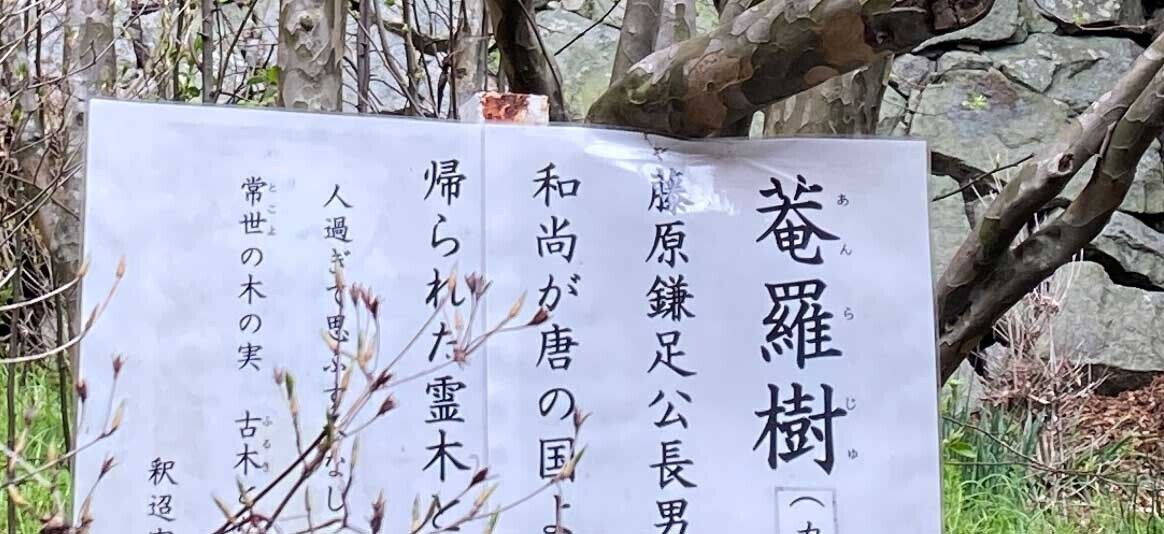 菴羅樹
あんらじゅ
藤原鎌足公長男
和尚が唐の国よ
帰られた霊木と
人過ぎて思ふすべなし
常世の木の実 古木
とこよ ふるき
釈迢